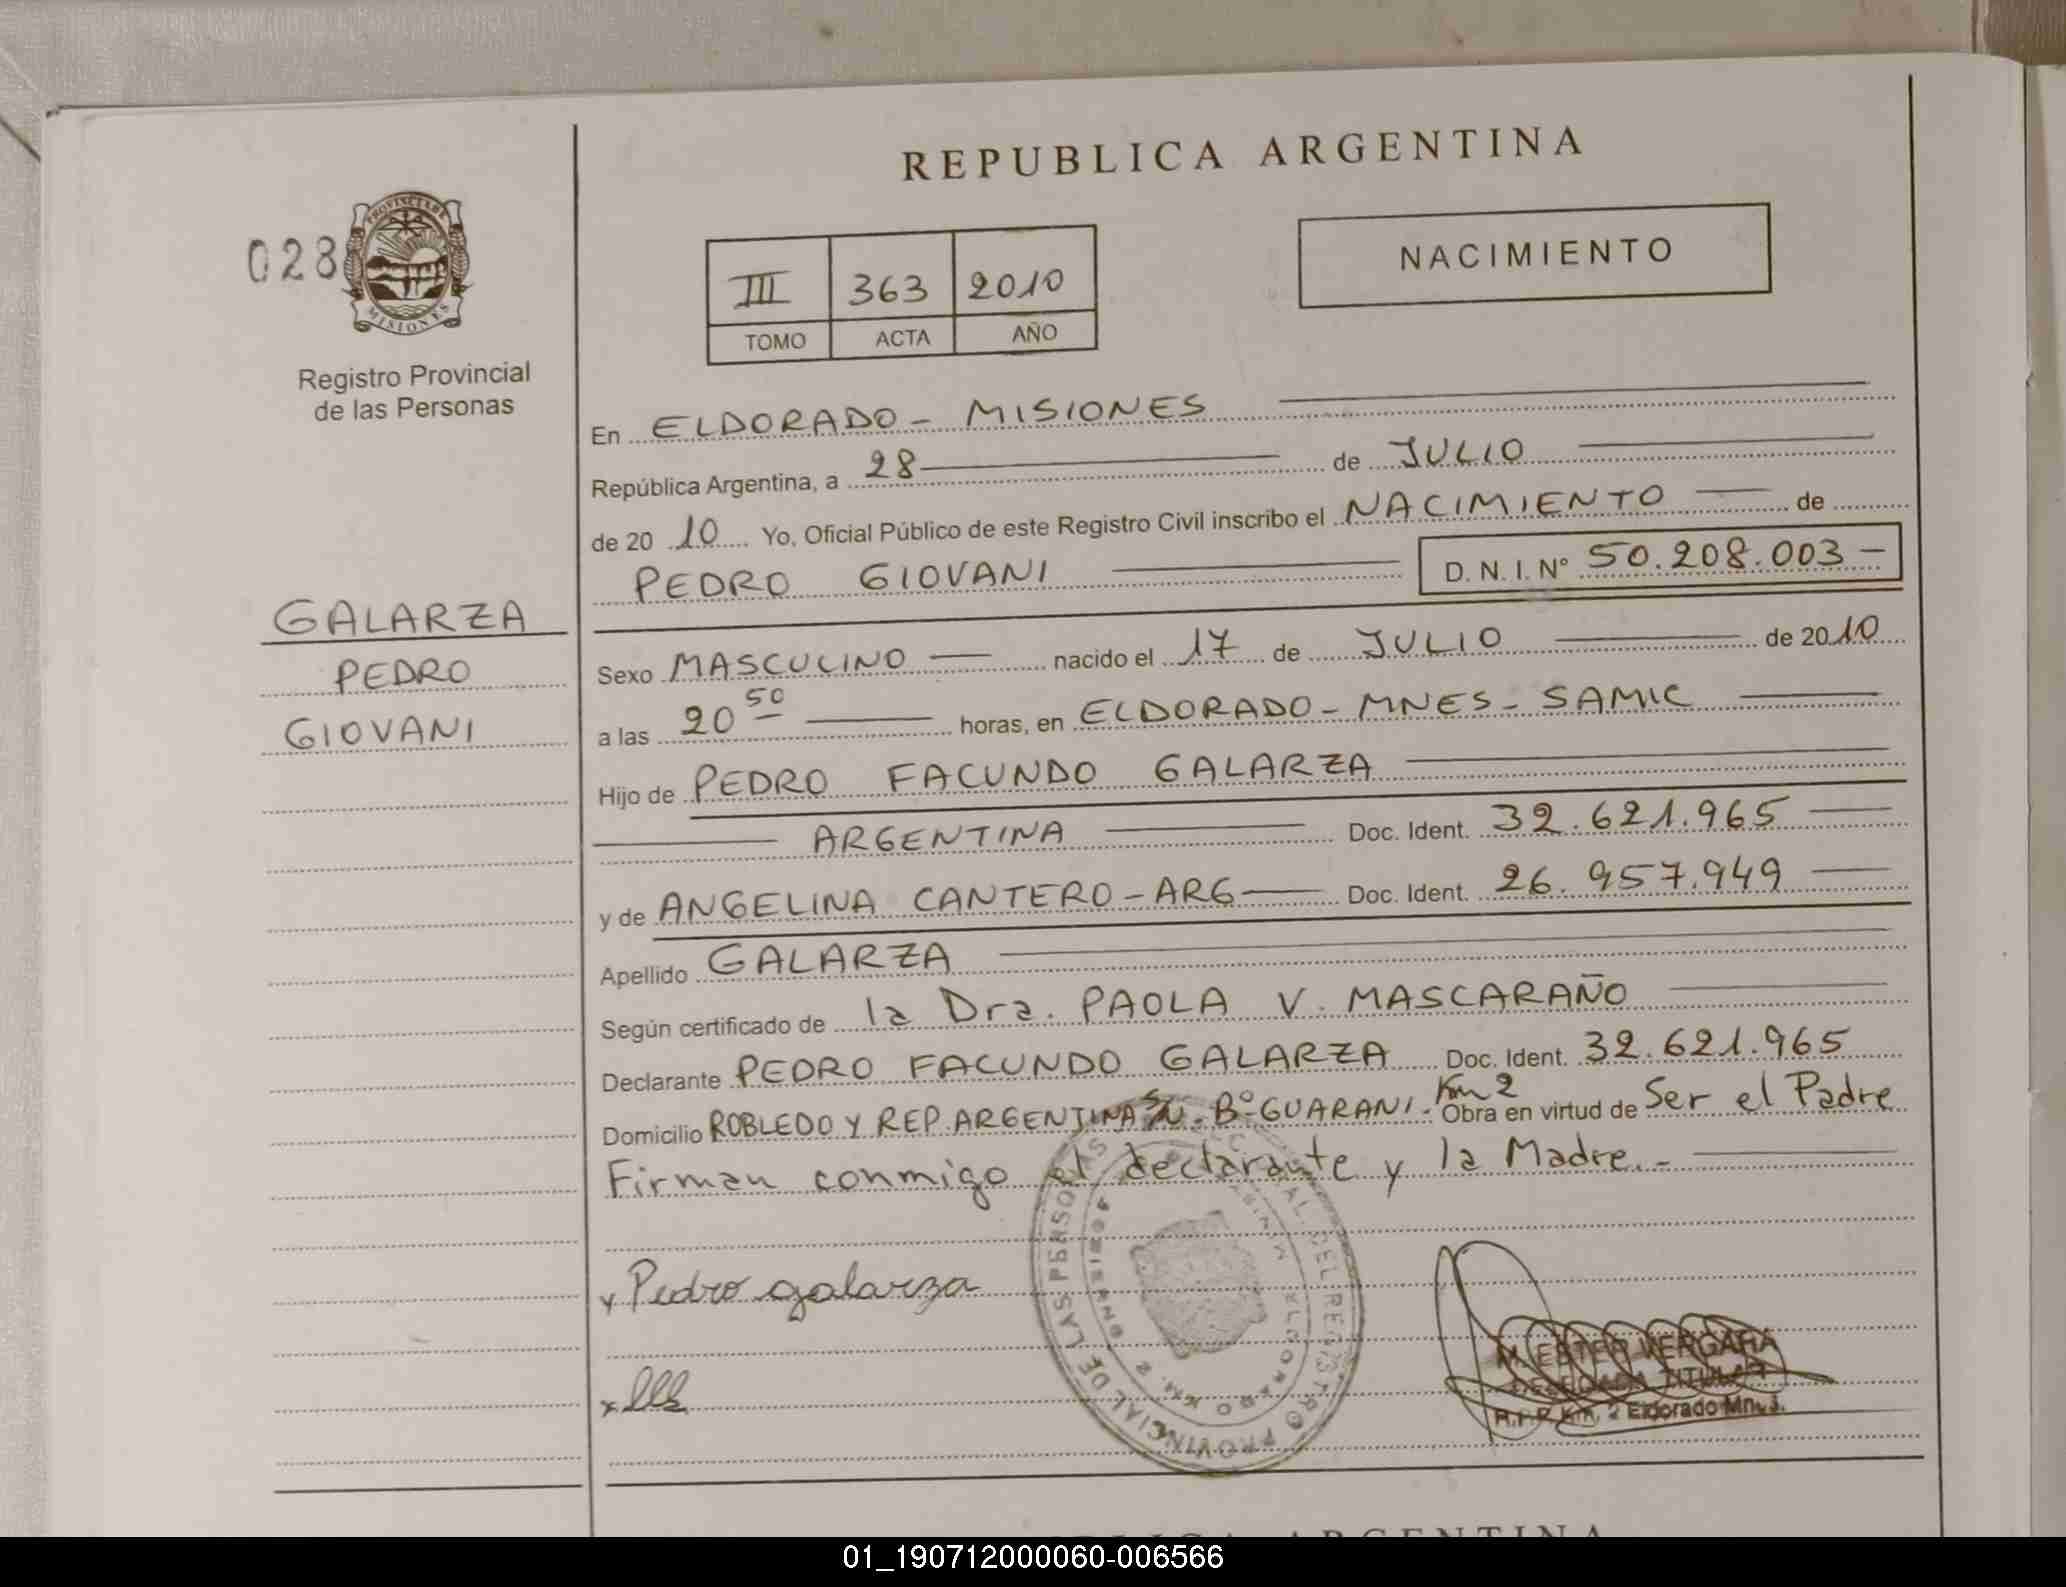 REPUBLICA ARGENTINA
028
PROVINCIA DE
MISIONES
Registro Provincial
de las Personas
III 363 2010
TOMO ACTA AÑO
NACIMIENTO
En ELDORADO - MISIONES
República Argentina, a 28 de JULIO
de 20 10 Yo, Oficial Público de este Registro Civil inscribo el NACIMIENTO de
PEDRO GIOVANI D. N. I. Nº 50.208.003 -
GALARZA
PEDRO
GIOVANI
Sexo MASCULINO nacido el 17 de JULIO de 2010
a las 20 50 horas, en ELDORADO - MNES - SAMIC
Hijo de PEDRO FACUNDO GALARZA
ARGENTINA Doc. Ident. 32.621.965
y de ANGELINA CANTERO - ARG Doc. Ident. 26.957.949
Apellido GALARZA
Según certificado de la Dra. PAOLA V. MASCARAÑO
Declarante PEDRO FACUNDO GALARZA Doc. Ident. 32.621.965
Domicilio ROBLEDO Y REP. ARGENTINA S/N - Bº GUARANI - Km 2 Obra en virtud de Ser el Padre
Firman conmigo el declarante y la Madre. -
x Pedro galarza
PROVINCIAL DE LAS PERSONAS
DEL REGISTRO
ELDORADO KM. 2
MISIONES
M. ESTER VERGARA
DELEGADA TITULAR
R.P.P. Km. 2 Eldorado Mnes.
REPUBLICA ARGENTINA
01_190712000060-006566